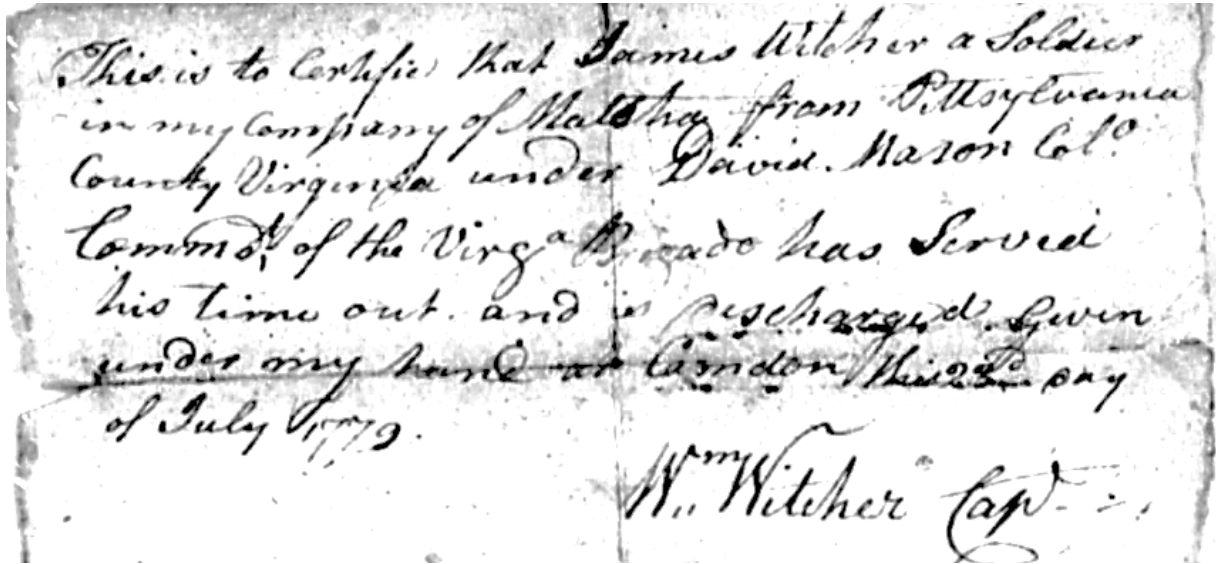 This is to Certifie that James Witcher a Soldier
in my Company of Malitha from Pittsylvania
County Virginia under David Mason Colº
Commdt of the Virgª Brigade has Served
his time out and is Discharged Given
under my hand at Camdon this day
of July 1779.
Wm Witcher Capt